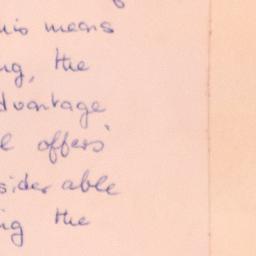 his means
ng, the
dvantage
l offers
sider able
ng the